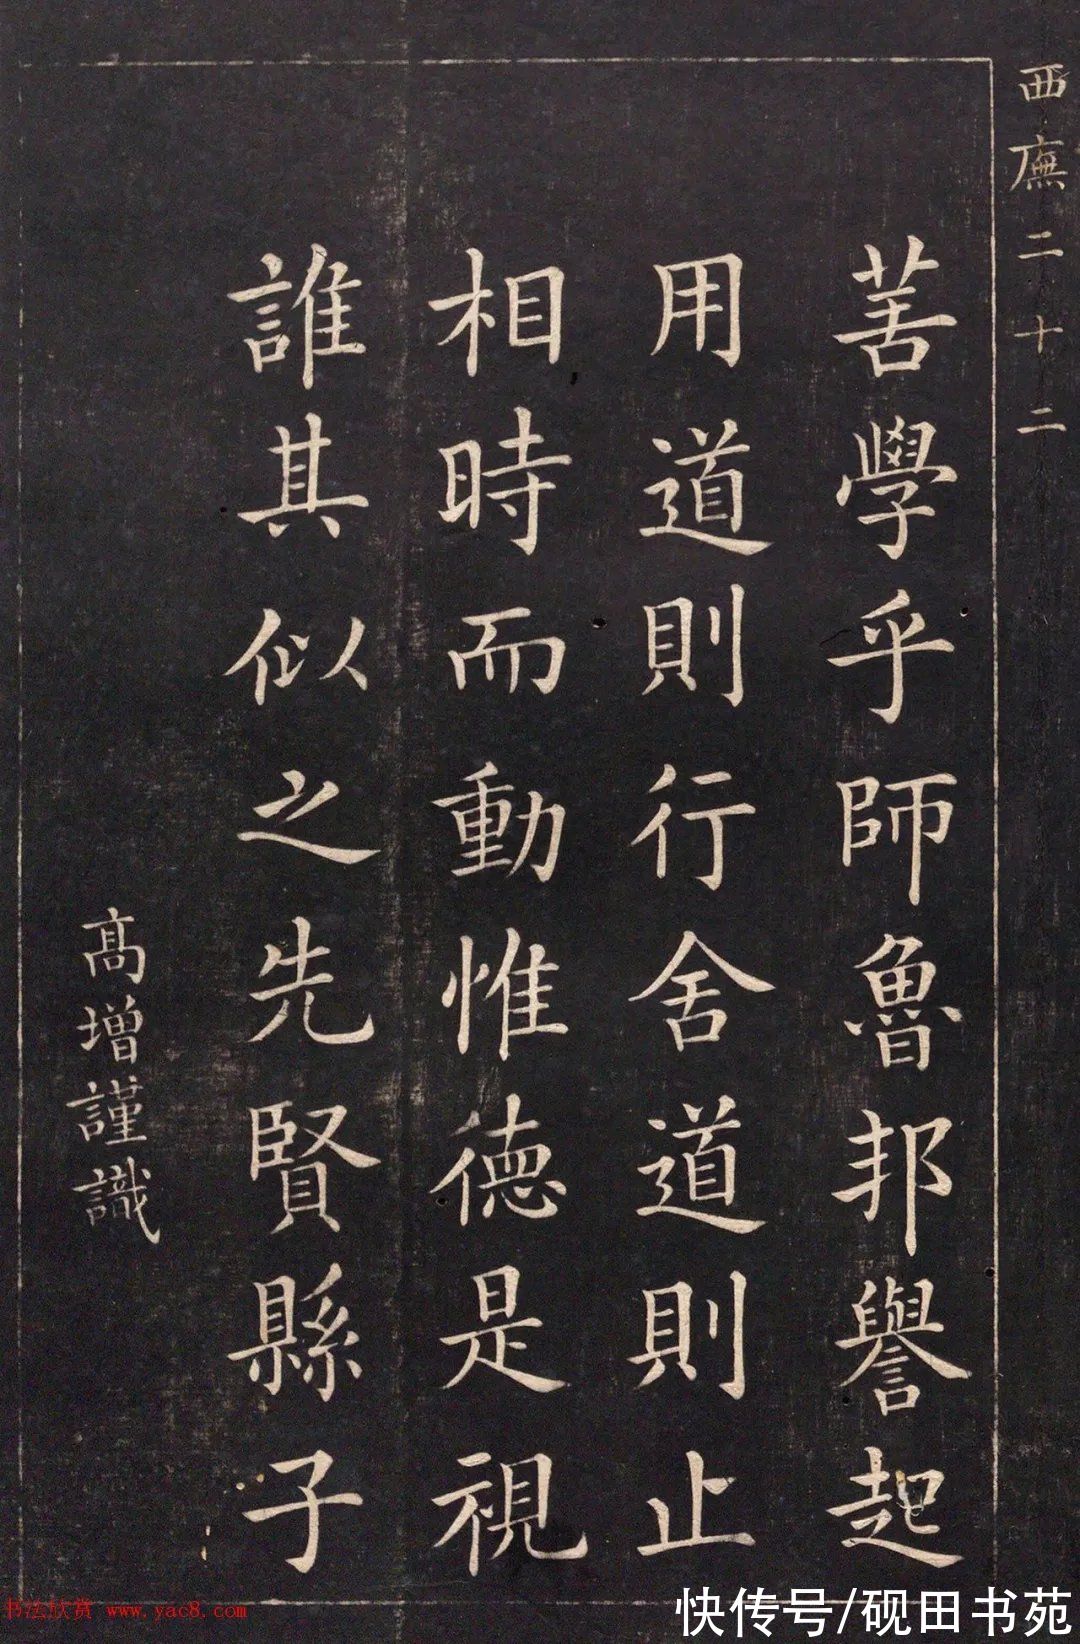 西廡二十二
善學乎師魯邦譽起
用道則行舍道則止
相時而動惟德是視
誰其似之先賢縣子
高增謹識
书法欣赏 www.yac8.com
快传号/砚田书苑